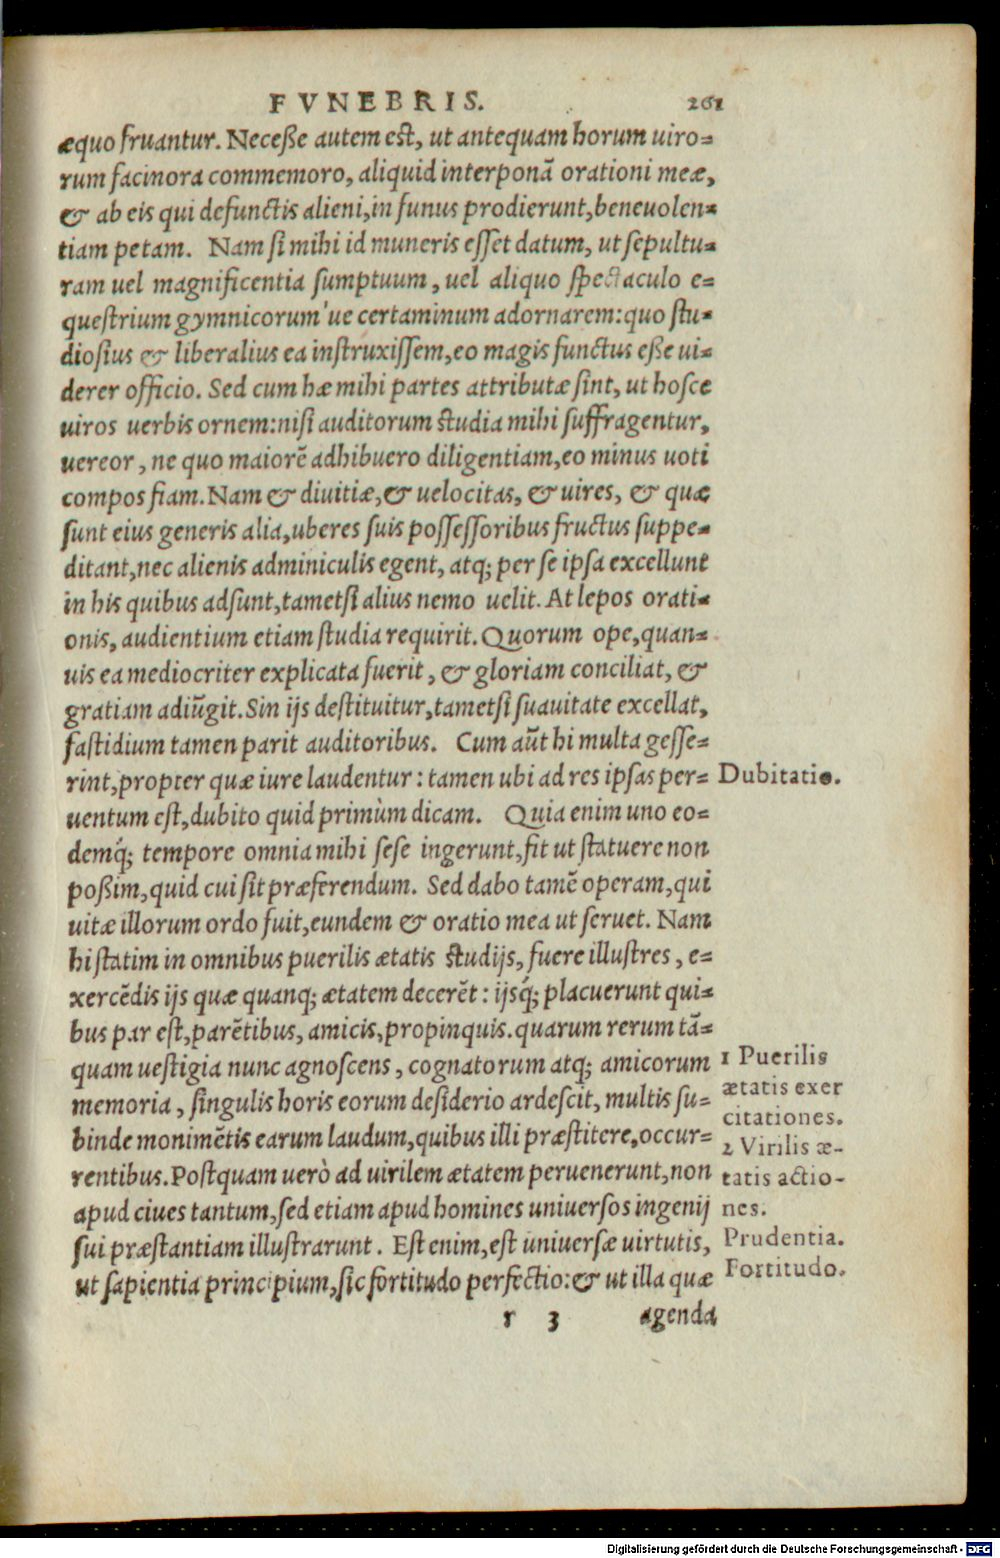 FVNEBRIS. 261
æquo fruantur. Neceße autem est, ut antequam horum uiro=
rum facinora commemoro, aliquid interponã orationi meæ,
& ab eis qui defunctis alieni, in funus prodierunt, beneuolen=
tiam petam. Nam si mihi id muneris esset datum, ut sepultu=
ram uel magnificentia sumptuum, uel aliquo spectaculo e=
questrium gymnicorum'ue certaminum adornarem: quo stu=
diosius & liberalius ea instruxissem, eo magis functus eße ui=
derer officio. Sed cum hæ mihi partes attributæ sint, ut hosce
uiros uerbis ornem: nisi auditorum studia mihi suffragentur,
uereor, ne quo maiorẽ adhibuero diligentiam, eo minus uoti
compos fiam. Nam & diuitiæ, & uelocitas, & uires, & quæ
sunt eius generis alia, uberes suis possessoribus fructus suppe=
ditant, nec alienis adminiculis egent, atq; per se ipsa excellunt
in his quibus adsunt, tametsi alius nemo uelit. At lepos orati=
onis, audientium etiam studia requirit. Quorum ope, quan=
uis ea mediocriter explicata fuerit, & gloriam conciliat, &
gratiam adiũgit. Sin ijs destituitur, tametsi suauitate excellat,
fastidium tamen parit auditoribus. Cum aũt hi multa gesse=
rint, propter quæ iure laudentur: tamen ubi ad res ipsas per=
Dubitatio.
uentum est, dubito quid primùm dicam. Quia enim uno eo=
demq́; tempore omnia mihi sese ingerunt, fit ut statuere non
poßim, quid cui sit præferendum. Sed dabo tamẽ operam, qui
uitæ illorum ordo fuit, eundem & oratio mea ut seruet. Nam
hi statim in omnibus puerilis ætatis studijs, fuere illustres, e=
xercẽdis ijs quæ quanq; ætatem decerẽt: ijsq́; placuerunt qui=
bus par est, parẽtibus, amicis, propinquis. quarum rerum tã=
quam uestigia nunc agnoscens, cognatorum atq; amicorum
memoria, singulis horis eorum desiderio ardescit, multis su=
binde monimẽtis earum laudum, quibus illi præstitere, occur=
rentibus. Postquam uerò ad uirilem ætatem peruenerunt, non
apud ciues tantum, sed etiam apud homines uniuersos ingenij
sui præstantiam illustrarunt. Est enim, est uniuersæ uirtutis,
ut sapientia principium, sic fortitudo perfectio: & ut illa quæ
1 Puerilis
ætatis exer
citationes.
2 Virilis æ-
tatis actio-
nes.
Prudentia.
Fortitudo.
r 3 agenda
Digitalisierung gefördert durch die Deutsche Forschungsgemeinschaft - DFG